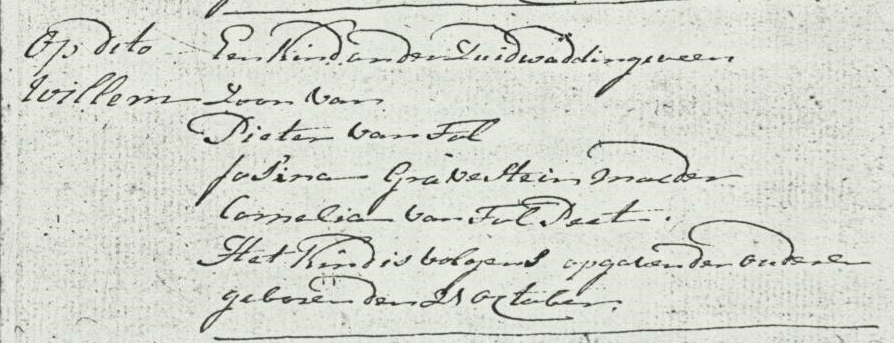 Op dito Een Kind onder Zuidwaddingsveen
Willem Zoon van
Pieter van Tol
Josina Gravestein Moeder
Cornelia van Tol Peet.
Het Kind is volgens opgave der ouderen
geboren den 21 october.